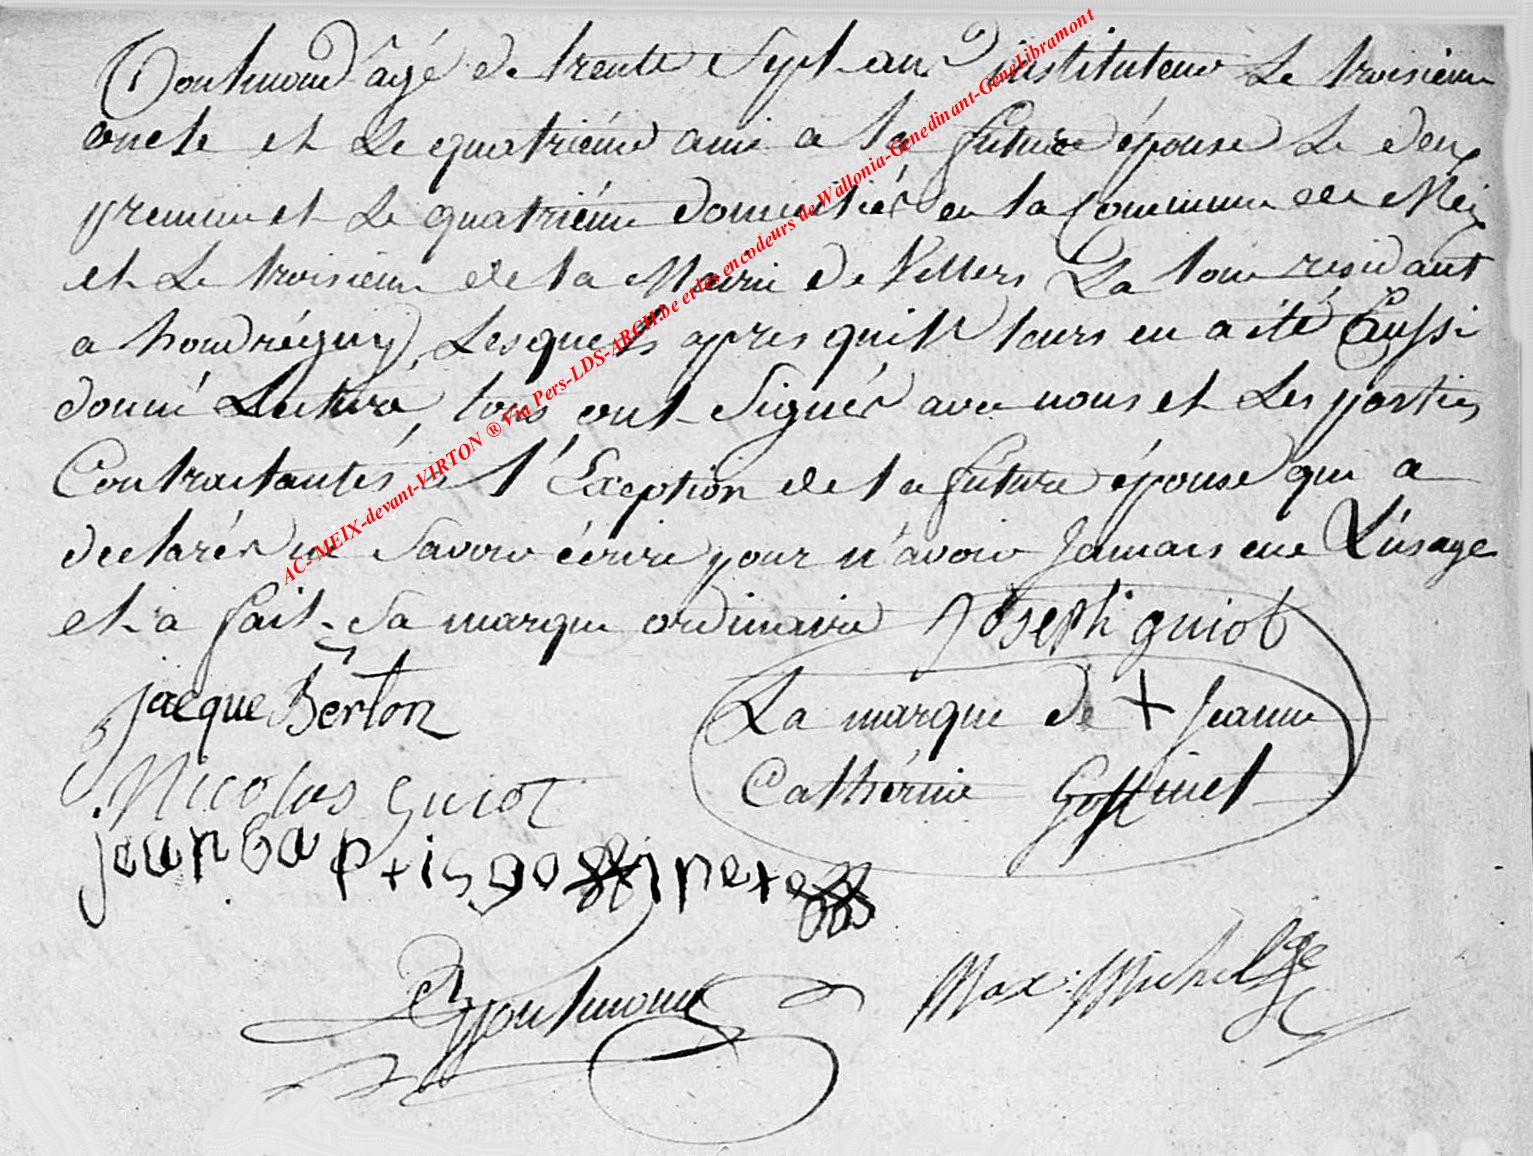 Pontmont âgé de trente Sept ans instituteur Le troisieme
oncle et Le quatriéme ami a la future épouse Le deux
premier et Le quatriéme domiciliés en la Commune de Meix
et Le troisieme de la Mairie de Villers La loue residant
a houdrégny, Lesquels apres quill leurs en a été Cussi
donné Lecture, tous ont Signés avec nous et Les parties
Contractantés a l'Exception de la future épouse qui a
declarés ne Savoir écrire pour n'avoir Jamais eue L'usage
et a fait Sa marque ordinaire Joseph guiot
jacque Berton
La marque de + Jeanne
Nicolas Guiot
Cathérine Goffinet
jean baptis goffinet
Pontmont
Max: Michel
AC-MEIX-devant-VIRTON ® Via Pers-LDS-ARCH.be et les encodeurs de Wallonia-Genedinant-GeneLibramont